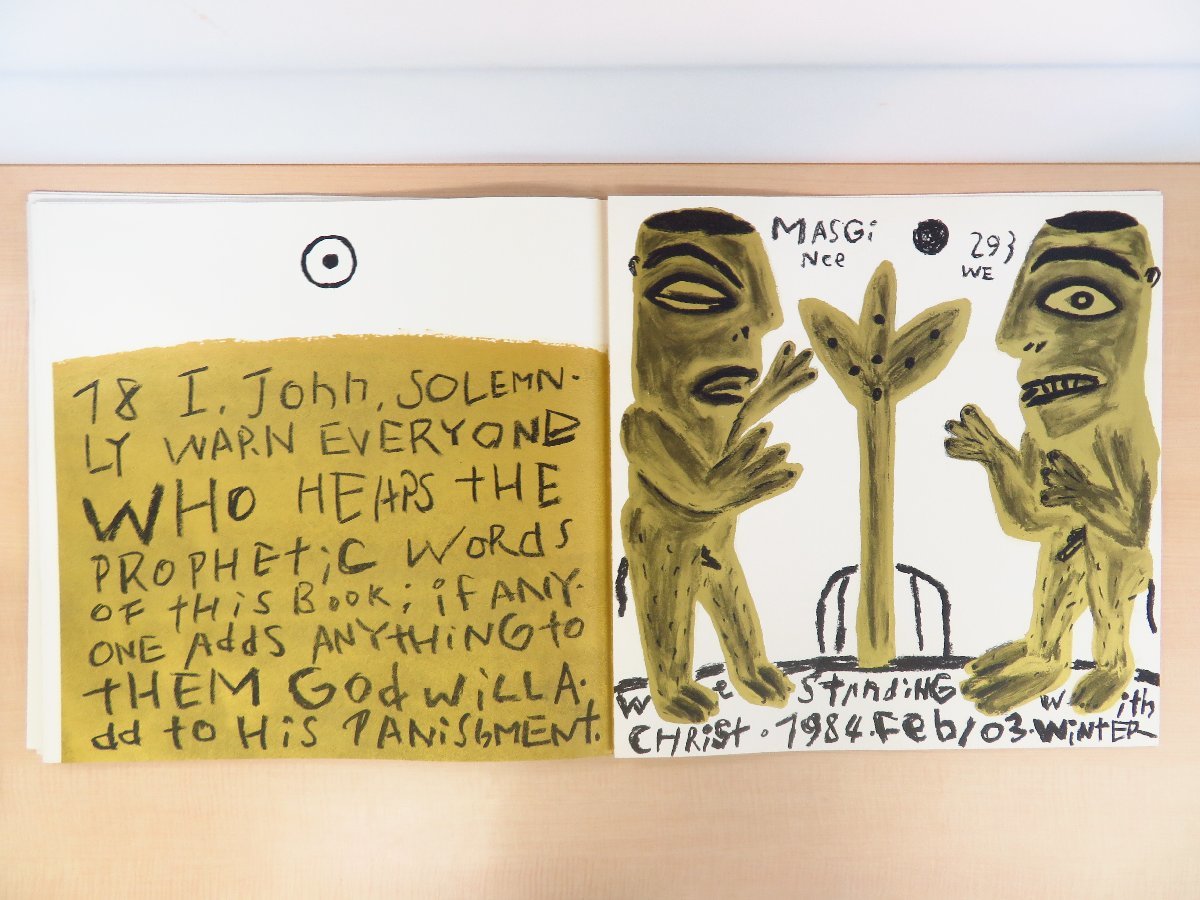 18 I, John, SOLEMN-
LY WARN EVERYONE
WHO HEAPS THE
PROPHEtiC WORdS
OF tHiS BOOK; if ANY-
ONE AddS ANYtHiNG to
tHEM GOd WiLL A-
dd to HiS PANiShMENT.
MASGi
Nee
293
WE
We StANdiNG With
CHRiSt. 1984. Feb/03. WiNtER